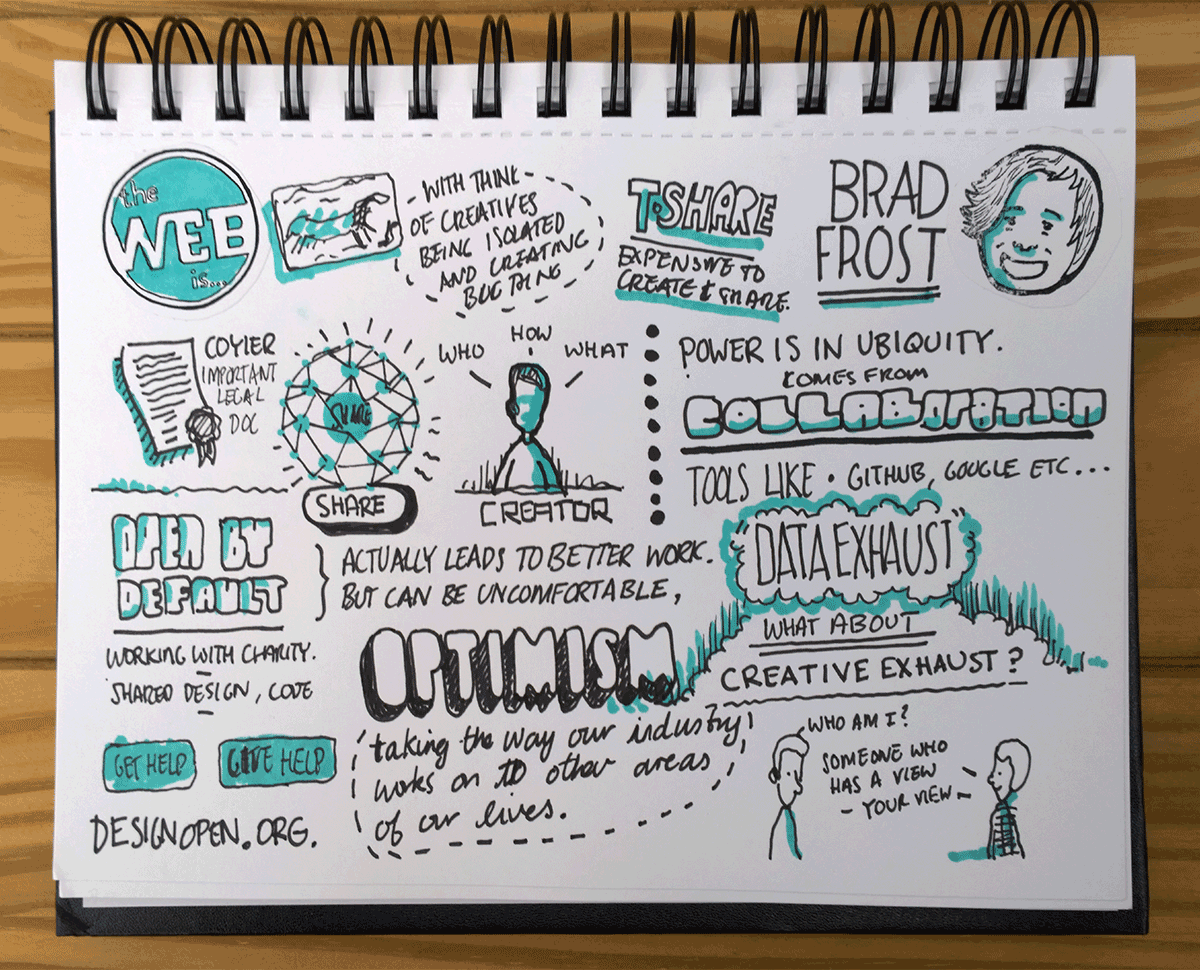 the
WEB
is...
WITH THINK
OF CREATIVES
BEING ISOLATED
AND CREATING
BUG THING
TO SHARE
EXPENSIVE TO
CREATE & SHARE.
BRAD
FROST
COYLER
IMPORTANT
LEGAL
DOC
SHARE
SHARE
WHO
HOW
WHAT
CREATOR
POWER IS IN UBIQUITY.
COMES FROM
COLLABORATION
TOOLS LIKE • GITHUB, GOOGLE ETC...
OPEN BY
DEFAULT
ACTUALLY LEADS TO BETTER WORK.
BUT CAN BE UNCOMFORTABLE,
DATA EXHAUST
WHAT ABOUT
CREATIVE EXHAUST?
WORKING WITH CHARITY.
SHARED DESIGN, CODE
OPTIMISM
taking the way our industry
works on to other areas
of our lives.
GET HELP
GIVE HELP
DESIGNOPEN.ORG.
WHO AM I?
SOMEONE WHO
HAS A VIEW
- YOUR VIEW -